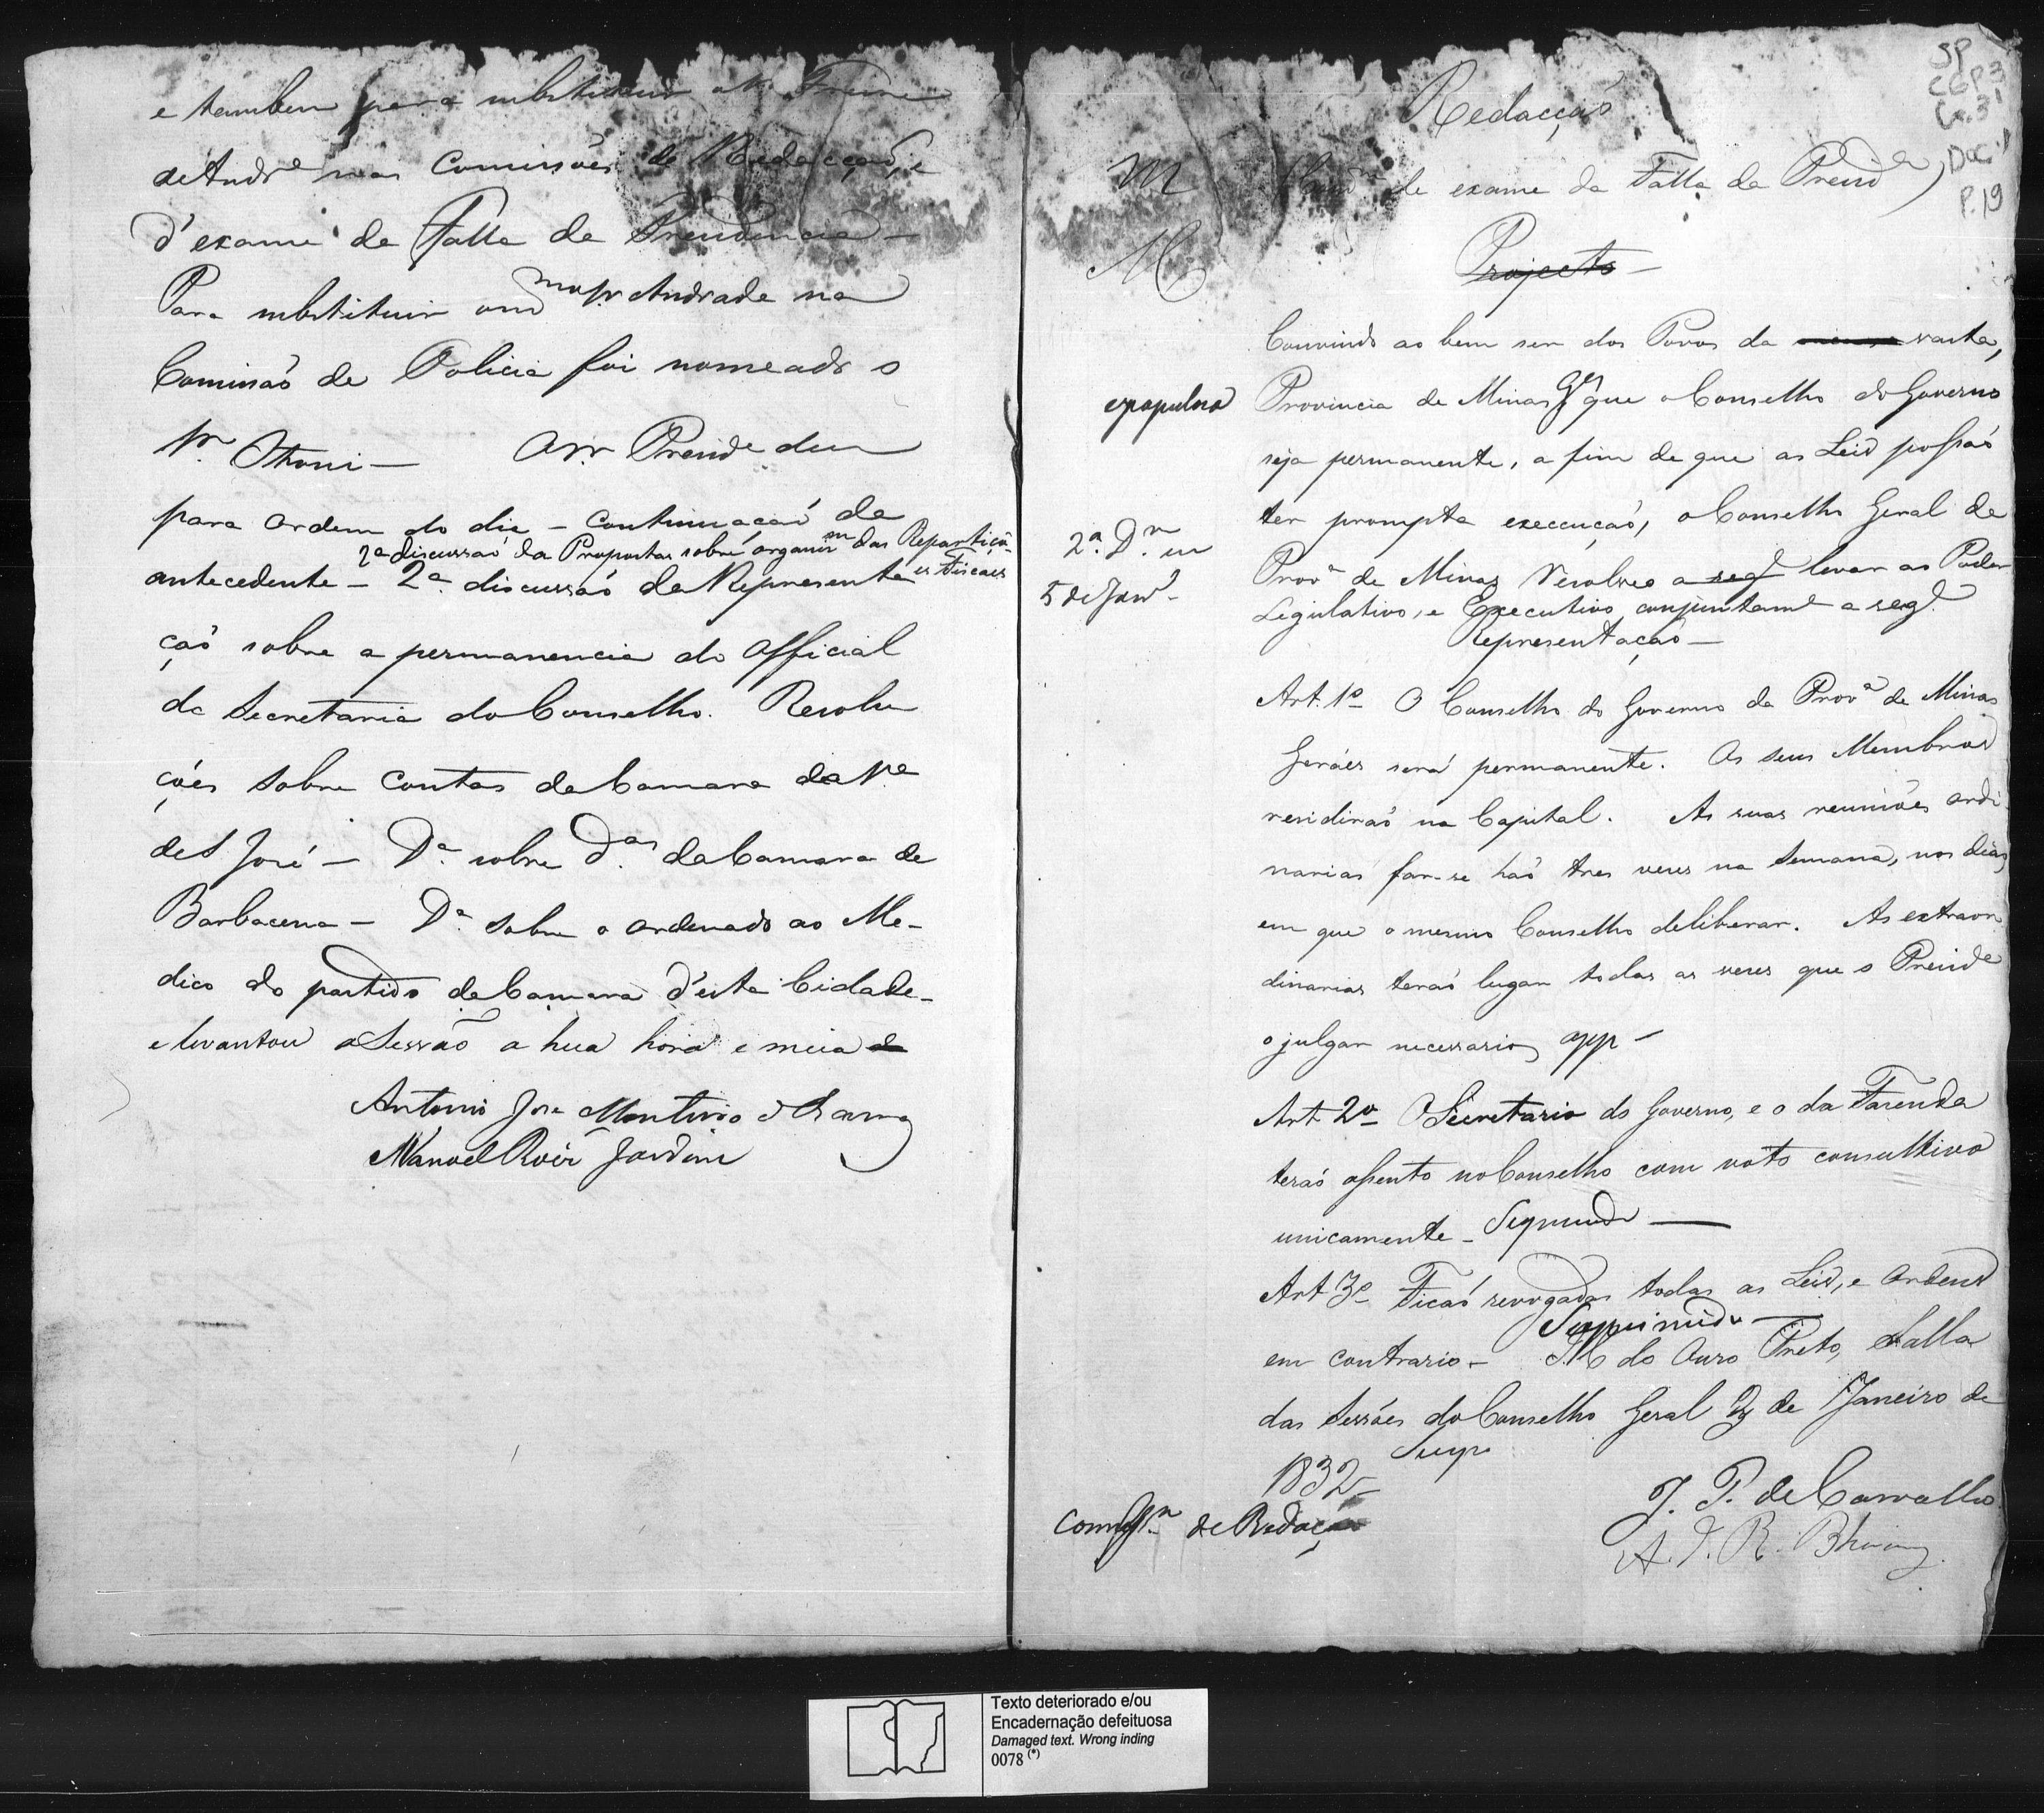 e tambem para substituir o Sr. Freire
de Andre nas Comissões de Redacção, e
d'exame da Falla da Presidencia -
Para substituir o mesmo Sr. Andrade na
Comissaõ de Policia foi nomeado o
Sr. Ottoni - O Sr. Preside deu
para ordem do dia - Continuaçaõ da
2ª discussaõ da Propostas sobre organisam das Repartiçõ-
es Fiscaes
antecedente - 2ª discussaõ da Representa
çaõ sobre a permanencia do Official
da Secretaria do Conselho. Resolu
ções sobre contas da Camara da Va
de S José - Da. sobre das. da Camara de
Barbacena - Da sobre o ordenado ao Me-
dico do partido da Camara d'esta Cidade -
e levantou a Sessão a hua hora e meia
Antonio José Monteiro de Barros
Manoel Roiz Jardim
SP
CGP 3
Cx. 31
Doc. 1
P. 19
Redacção
M
de exame da Falla da Presida
M
Projecto -
Convindo ao bem ser dos Povos da vasta,
e populosa
Provincia de Minas Ges que o Conselho do Governo
seja permanente, a fim de que as Leis possaõ
ter prompta execcuçaõ, o Conselho Geral da
2ª. Dm. em
5 de Janro.
Prova de Minas resolveo a segte levar ao Poder
Legislativo, e Executivo conjuntamte a segte.
Representaçaõ -
Art. 1º O Conselho do Governo da Prova de Minas
Geráes será permanente. Os seus Membros
residiraõ na Capital. As suas reuniões ordi
narias far-se haõ tres vezes na Semana, nos dias
em que o mesmo Conselho deliberar. As extraor
dinarias teraõ lugar todas as vezes que o Preside
o julgar necessario app -
Art. 2º O Secretario do Governo, e o da Fazenda
teraõ assento no Conselho com voto consultivo
unicamente - Suprimido
Art 3º Ficaõ revogadas todas as Leis, e Ordens
Supprimido
em contrario - do Ouro Preto, Salla
das Sessões do Conselho Geral 2 de Janeiro de
Supr
1832 -
J. P. de Carvalho
Commissm. de Redaçaõ